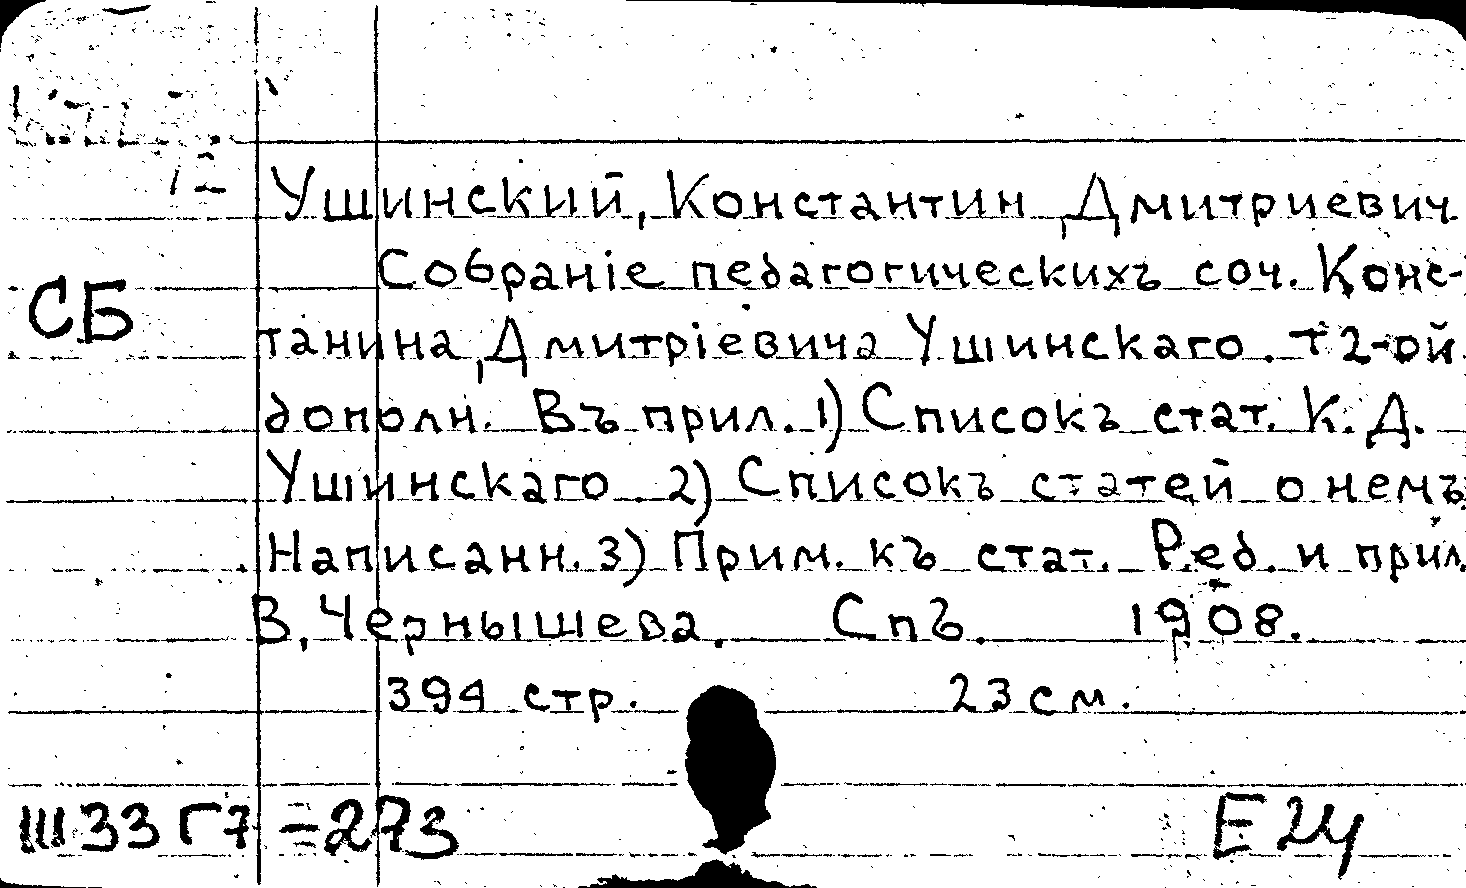 Ушинский, Константин Дмитриевич
Собраніе педагогическихъ соч. Конс-
СБ
танина Дмитріевича Ушинскаго. Т 2-ой
дополн. Въ прил. 1) Списокъ стат. К. Д.
Ушинскаго 2) Списокъ статей о немъ
Написанн. 3) Прим. къ стат. Ред. и прил.
В. Чернышева. Спб. 1908.
394 стр. 23 см.
Ш33 Г7 =273 Е 24